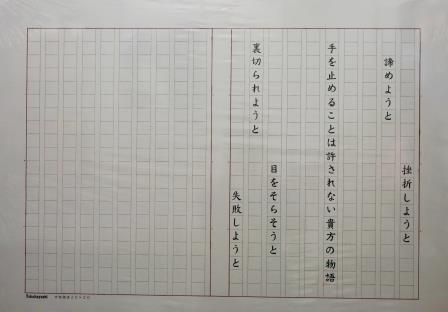 挫折しようと
諦めようと
手を止めることは許されない貴方の物語
目をそらそうと
裏切られようと
失敗しようと